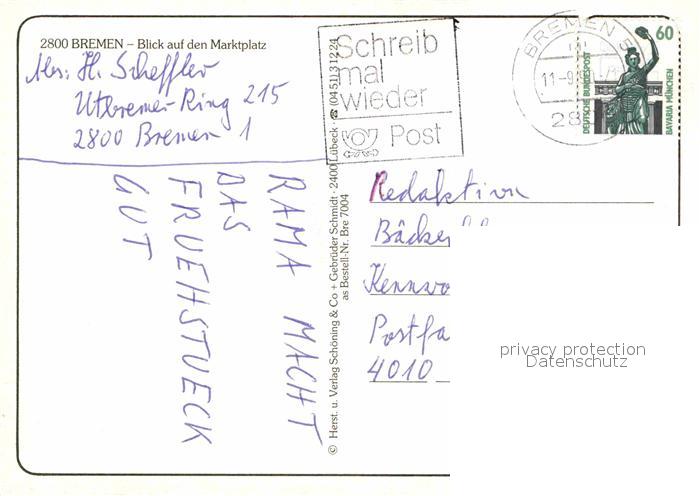 2800 BREMEN – Blick auf den Marktplatz
Abs: H. Scheffler
Utbremer Ring 215
2800 Bremen 1
RAMA MACHT
DAS
FRUEHSTUECK
GUT
© Herst. u. Verlag Schöning & Co + Gebrüder Schmidt · 2400 Lübeck · ☎ (0451) 31224
as Bestell-Nr. Bre 7004
Schreib
mal
wieder
Post
BREMEN 5
11-9
28
60
DEUTSCHE BUNDESPOST
BAVARIA MÜNCHEN
Redaktion
Postfa
4010
privacy protection
Datenschutz